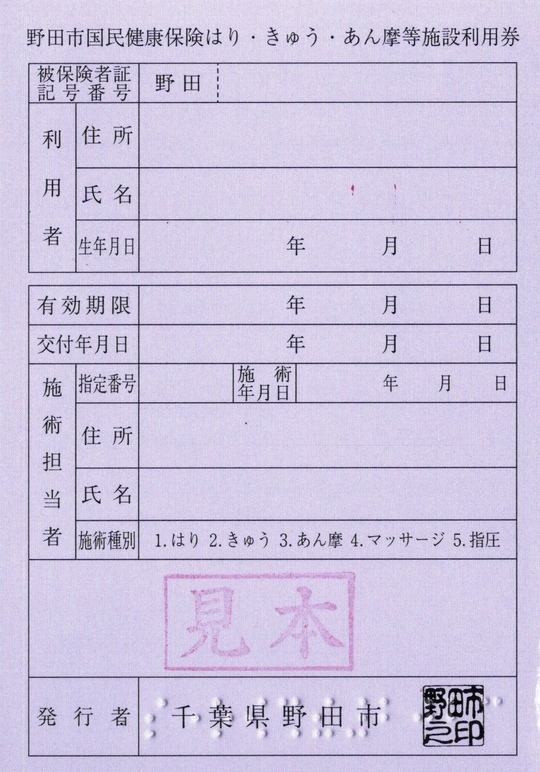 野田市国民健康保険はり・きゅう・あん摩等施設利用券
被保険者証
記号番号
野田
利用者
住所
氏名
生年月日
年 月 日
有効期限
年 月 日
交付年月日
年 月 日
施術担当者
指定番号
施術
年月日
年 月 日
住所
氏名
施術種別
1.はり 2.きゅう 3.あん摩 4.マッサージ 5.指圧
見本
発行者
千葉県野田市
野田市之印